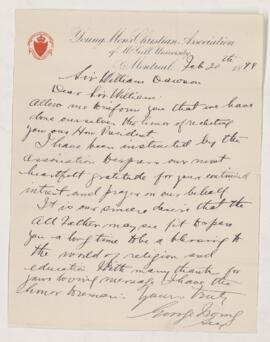 Young Men's Christian Association
of McGill University
Montreal, Feb 20th 1898
Sir William Dawson
Dear Sir William:
Allow me to inform you that we have
done ourselves the honor of reelecting
you our Hon. President.
I have been instructed by the
Association to express our most
heartfelt gratitude for your continued
interest and prayer on our behalf
It is our sincere desire that the
All Father may see fit to spare
you a long time to be a blessing to
the world of religion and
education With many thanks for
your loving message I have the
honor to remain Yours truly
George
Secy